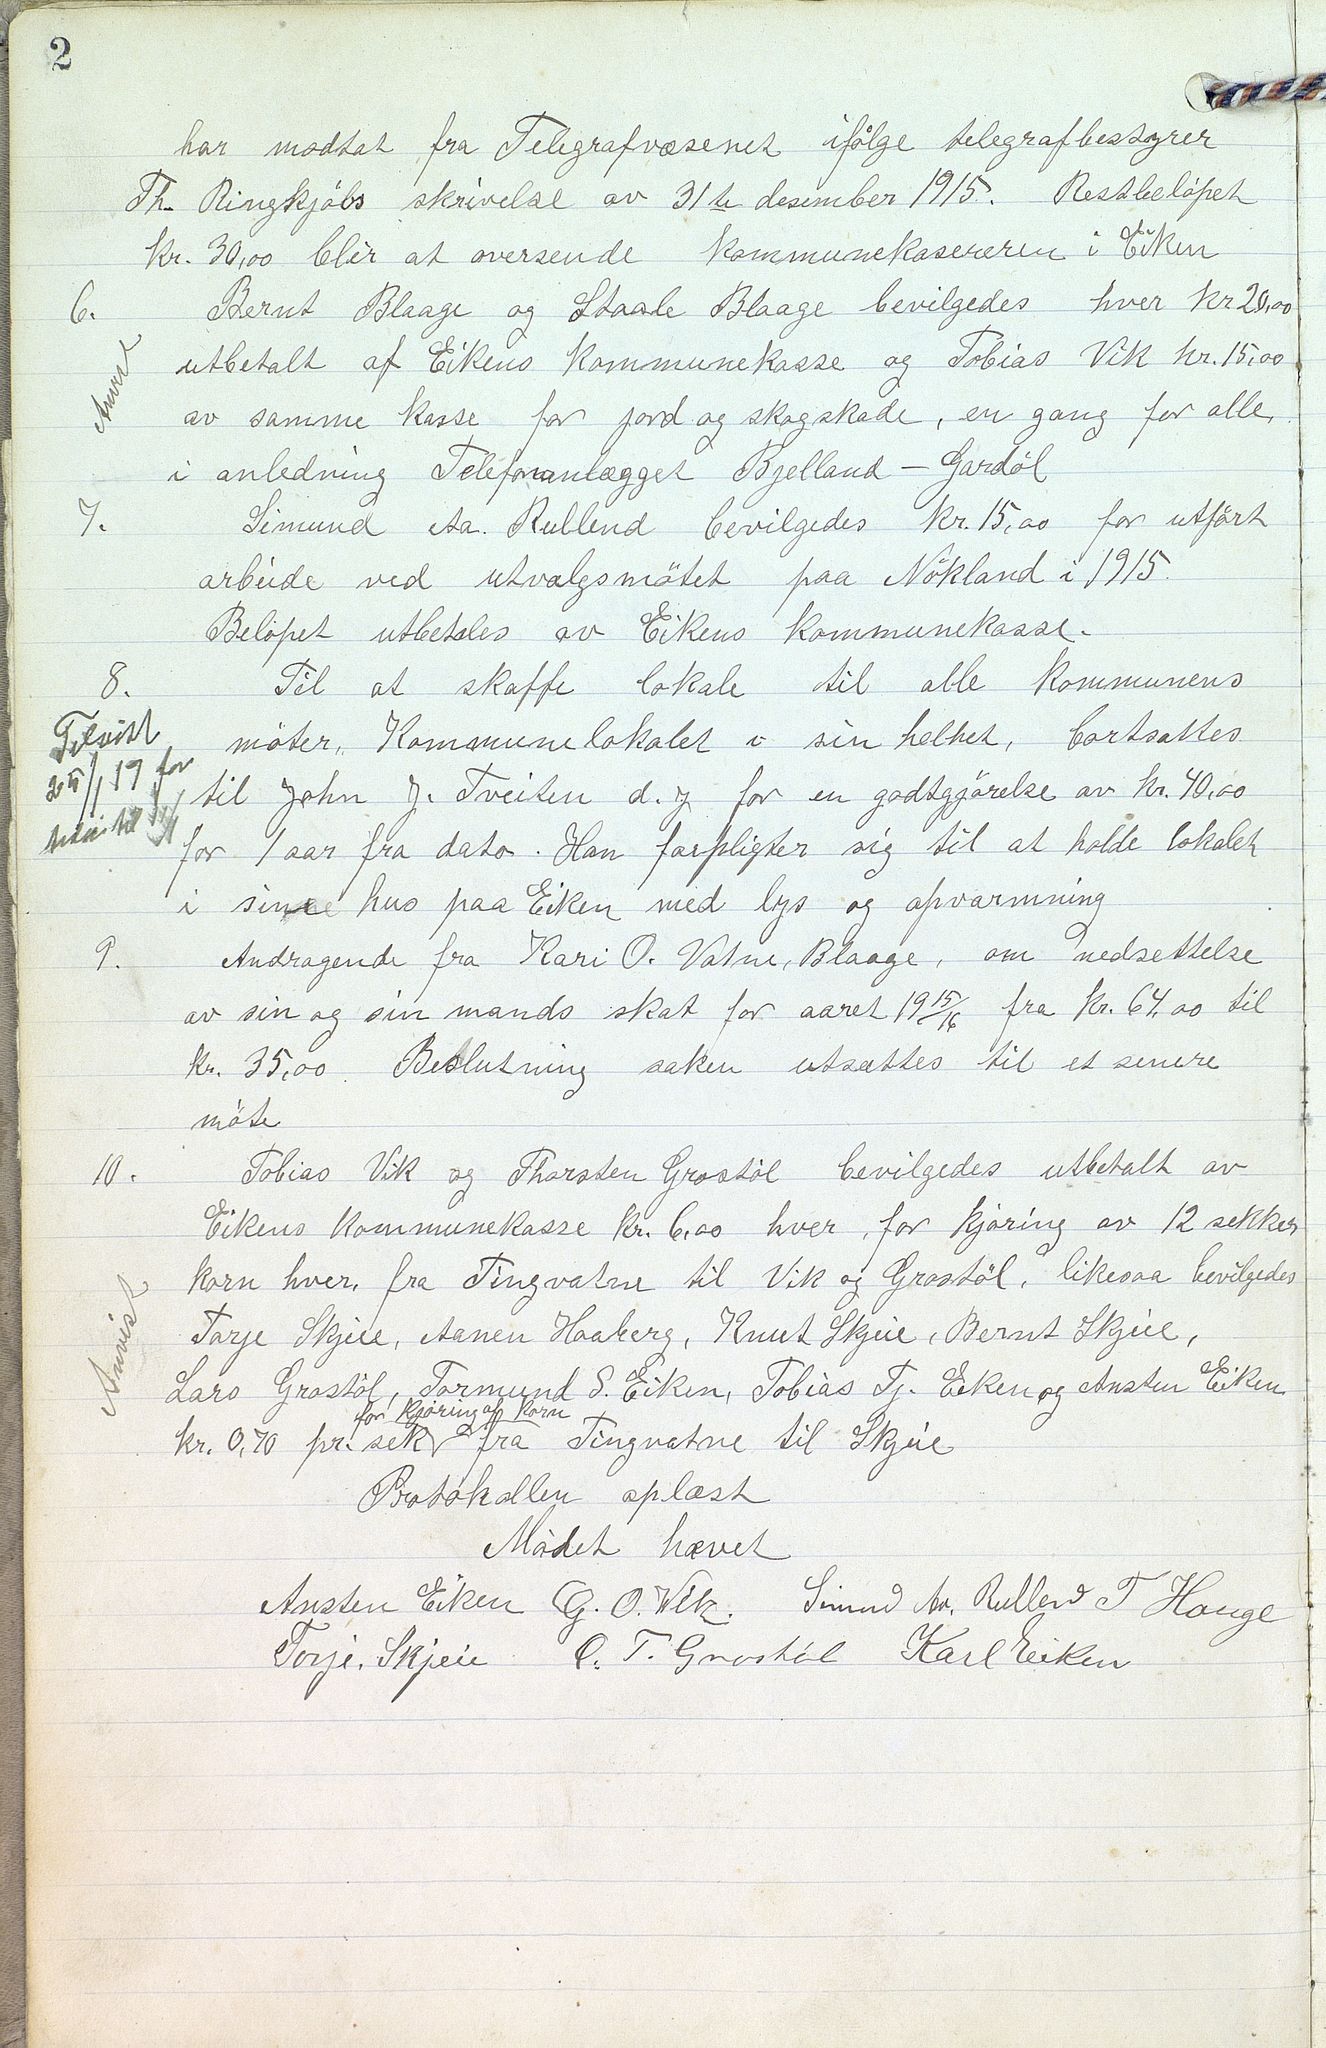 2
har modtat fra Telegrafvæsenet ifölge telegrafbestyrer
Th. Ringkjöbs skrivelse av 31te desember 1915. Restbelöpet
kr. 30,00 blir at oversende kommunekasereren i Eiken
6. Bernt Blaage og Staale Blaage bevilgedes hver kr 20,00
utbetalt af Eikens kommunekasse og Tobias Vik kr. 15,00
Anvist
av samme kasse for jord og skogskade, en gang for alle,
i anledning Telefonanlægget Bjelland — Gardöl
7. Simund Aa. Rullend bevilgedes kr. 15,00 for utfört
arbeide ved utvalgsmötet paa Nökland i 1915.
Belöpet utbetales av Eikens kommunekasse.
8. Til at skaffe lokale til alle kommunens
möter, Kommunelokalet i sin helhet, bortsattes
25/1 19 for
til John J. Tveiten d.y for en godtgjörelse av kr. 40,00
for 1 aar fra dato. Han forpligter sig til at holde lokalet
i sine hus paa Eiken med lys og opvarmning
9. Andragende fra Kari O. Vatne, Blaage, om nedsettelse
av sin og sin mands skat for aaret 1915/16 fra kr. 64,00 til
kr. 35,00. Beslutning saken utsættes til et senere
möte
10. Tobias Vik og Thorsten Grostöl bevilgedes utbetalt av
Eikens kommunekasse kr. 6,00 hver, for kjöring av 12 sekker
korn hver, fra Tingvatne til Vik og Grostöl, likesaa bevilgedes
Anvist
Torje Skjeie, Aanen Haaberg, Knut Skjeie, Bernt Skjeie,
Lars Grostöl, Tormund S. Eiken, Tobias Tj. Eiken og Ansten Eiken
for kjöring af korn
kr. 0,70 pr. sek fra Tingvatne til Skjeie
Protokollen oplæst
Mödet hævet
Ansten Eiken G. O. Vik. Simund Aa. Rullend T Hauge
Torje. Skjeie O. T. Grostöl Karl Eiken